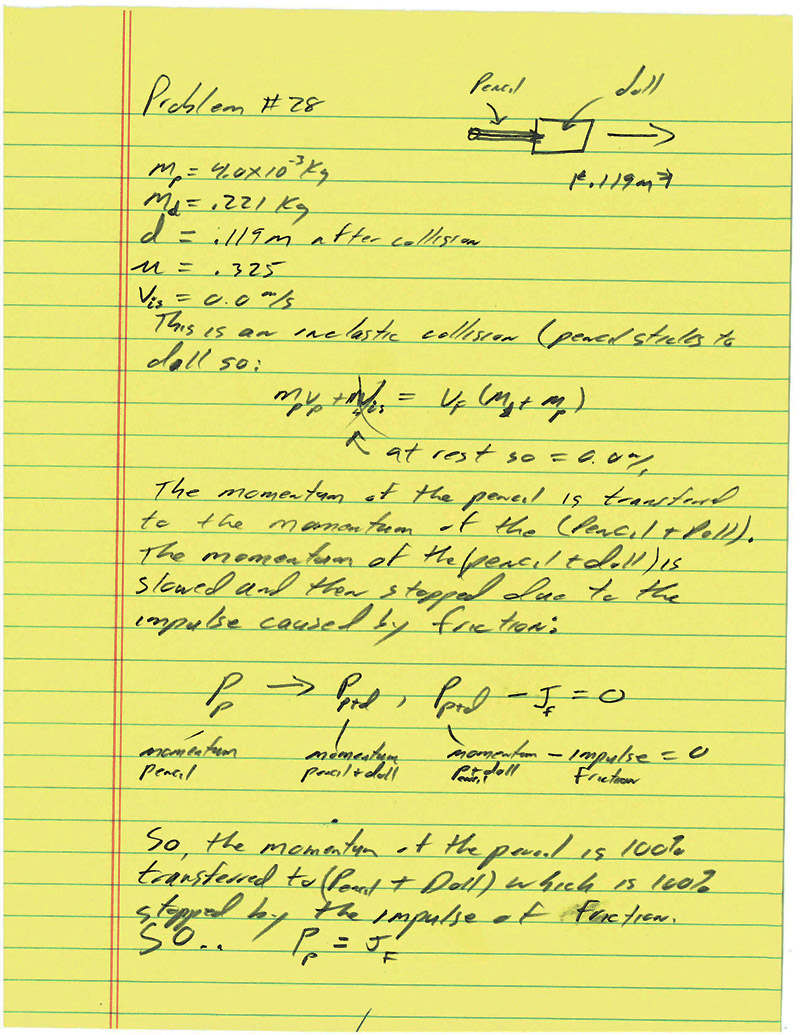 Problem #28
Pencil
doll
.119m
mp = 4.0x10⁻³ Kg
Md = .221 Kg
d = .119m after collision
u = .325
Vis = 0.0 m/s
This is an inelastic collision (pencil sticks to
doll so:
mpVp + MdVis = VF (Md + mp)
at rest so = 0.0 m/s
The momentum of the pencil is transferd
to the momentum of the (Pencil + Doll).
The momentum of the (pencil + doll) is
slowed and then stopped due to the
impulse caused by friction:
Pp → Pp+d, Pp+d - Jf = 0
momentum pencil
momentum pencil + doll
momentum pencil + doll - impulse Friction = 0
So, the momentum of the pencil is 100%
transferred to (Pencil + Doll) which is 100%
stopped by the impulse of Friction.
SO.. Pp = JF
1